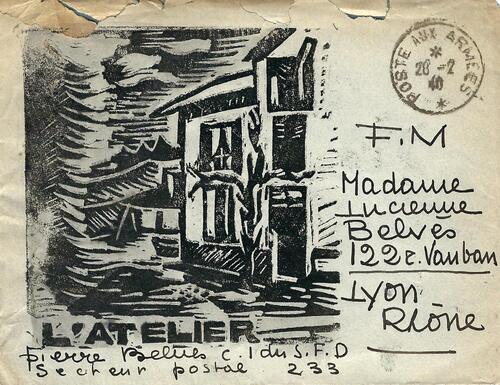 POSTE AUX ARMÉES
28-2
40
F.M
Madame
Lucienne
Belvès
122 r. Vauban
Lyon
Rhône
L'ATELIER
Pierre Belvès c. 1 du S.F.D
Secteur postal 233